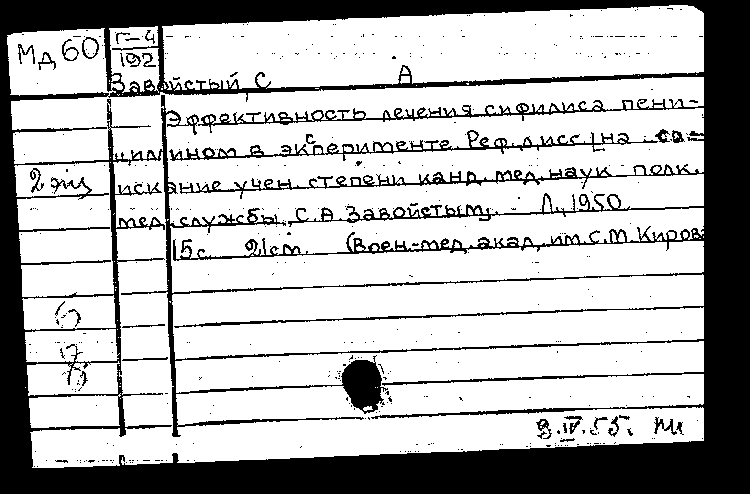 Мд 60 Г-4
192
Завойстый, С А
Эффективность лечения сифилиса пени-
циллином в эксперименте. Реф. дисс. на со-
2 экз искание учен. степени канд. мед. наук полк.
мед. службы С.А. Завойстым. Л., 1950
15 с. 21 см. (Воен.-мед. акад. им. С.М. Кирова
9.IV.55.